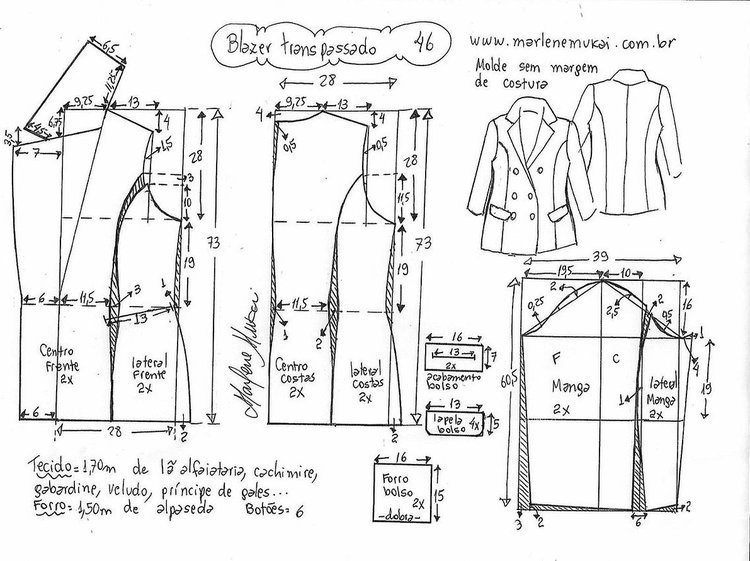 Blazer transpassado 46
www.marlenemukai.com.br
Molde sem margem
de costura
6,5
11,25
9,25
13
6,75
4
3,5
4,5
7
1,5
28
3
10
73
19
6
11,5
3
1
13
Centro
Frente
2X
lateral
Frente
2X
6
28
2
28
9,25
13
4
4
0,5
0,5
28
11,5
73
19
11,5
1
2
Centro
costas
2X
lateral
costas
2X
2
Marlene Mukai
16
13
2x
7
acabamento
bolso
13
lapela
bolso
4x
5
16
Forro
bolso
2X
-dobra-
15
39
19,5
10
2
0,25
2,5
2
0,5
16
1
4
60,5
F
C
Manga
2X
1
lateral
Manga
2X
19
3
2
6
2
Tecido = 1,70m de lã alfaiataria, cachimire,
gabardine, veludo, príncipe de gales...
Forro = 1,50m de alpaseda Botões = 6